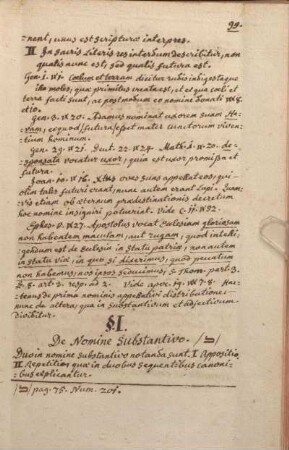 99.
nent, unus est scripturæ interpres.
II. In sacris Literis res interdum describitur, non
qualis nunc est, sed qualis futura est.
Gen. I. ℣ 1. Cœlum et terram dicitur rudis indigestaque
illa moles, quæ primitus creata est, et ex qua cœli et
terra facti sunt, ac postmodum eo nomine donati ℣ 8. et
10.
Gen. 3. ℣ 20. Adamus nominat uxorem suam Hevam,
eo quod futura esset mater cunctorum viventium
hominum.
Gen. 29. ℣ 21. Deut. 22. ℣ 24. Matth. 1. ℣ 20. desponsata
vocatur uxor, quia est uxor promissa et
futura.
Joan. 10. ℣ 16. Xtus oves suas appellat eos, qui
olim tales futuri erant, nunc autem erant Lupi.
etiam ob æternum prædestinationis decretum
hoc nomine insigniri potuerint. Vide C. 11. ℣ 52.
Ephes. 5. ℣ 27. Apostolus vocat Eclesiam gloriosam
non habentem maculam, aut rugam; quod intelligendum
est de Eclesia in statu patriæ, non autem
in statu viæ, in quo si dixerimus, quod peccatum
non habemus, nos ipsos seducimus, S. Thom. part. 3.
q. 8. art. 3. resp. ad 2. Vide
prima nominis appellativi distributione:
nunc de altera, qua in substantivum et adjectivum
dividitur.
§ I.
De Nomine Substantivo.
Duo in nomine substantivo notanda sunt, I. Appositio
II. Repetitio; quæ in duobus sequentibus canonibus
explicantur.
pag. 75. Num. 201.